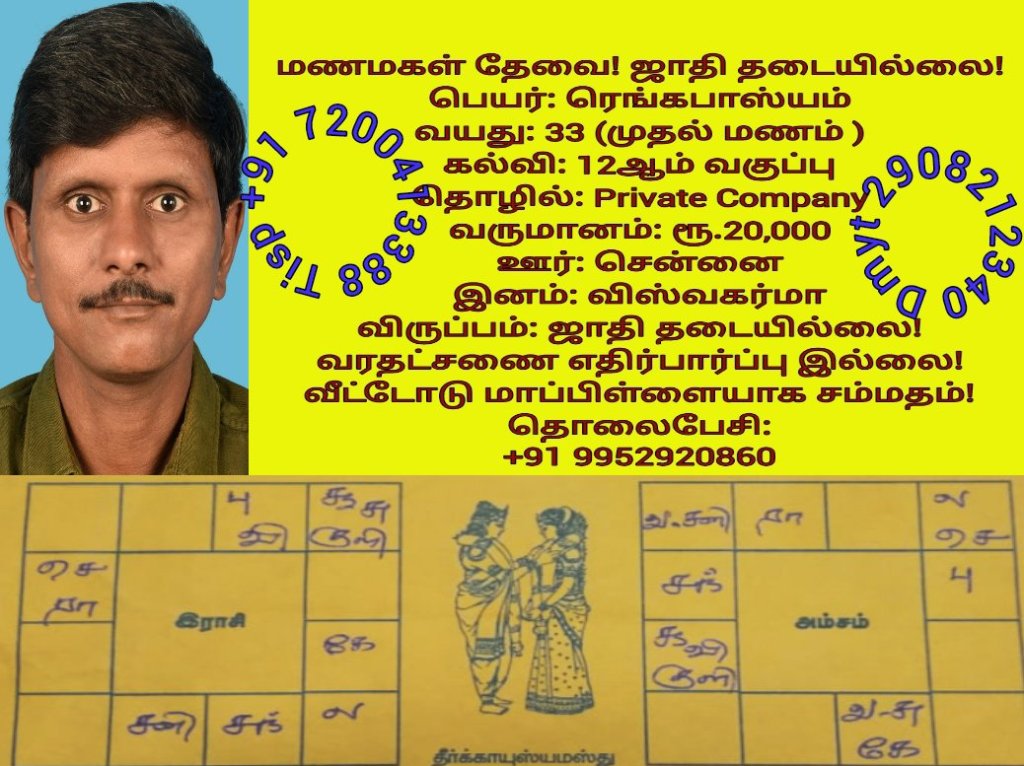 மணமகள் தேவை! ஜாதி தடையில்லை!
பெயர்: ரெங்கபாஸ்யம்
வயது: 33 (முதல் மணம் )
கல்வி: 12ஆம் வகுப்பு
தொழில்: Private Company
வருமானம்: ரூ.20,000
ஊர்: சென்னை
இனம்: விஸ்வகர்மா
விருப்பம்: ஜாதி தடையில்லை!
வரதட்சணை எதிர்பார்ப்பு இல்லை!
வீட்டோடு மாப்பிள்ளையாக சம்மதம்!
தொலைபேசி:
+91 9952920860
Tisp +91 7200413388
Dmyt 2908212340
பு
செ
ரா
இராசி
கே
சனி சுந் ல
ரா ல
செ
சுந் பு
அம்சம்
கே
தீர்க்காயுஸ்யமஸ்து